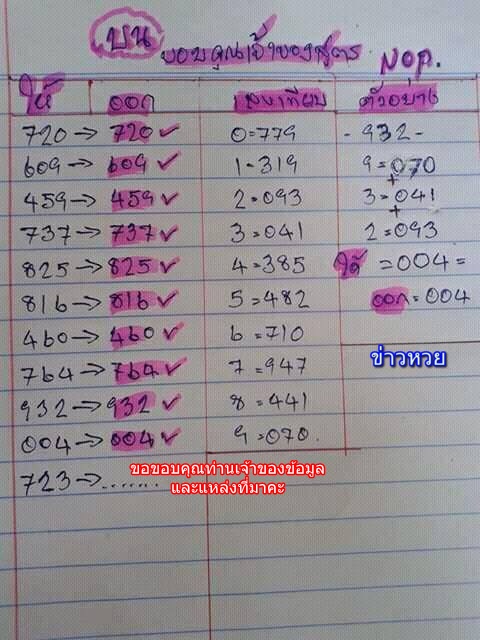 บน ขอบคุณเจ้าของสูตร NOP.
ให้ ออก เลขที่ผม ตัวอย่าง
720→ 720✓ 0=779 -932-
609→ 609✓ 1=319 9=070
+
459→ 459✓ 2=093 3=041
+
737→ 737✓ 3=041 2=093
825→ 825✓ 4=385 ได้ =004=
816→ 816✓ 5=482 ออก=004
460→ 460✓ 6=710
764→ 764✓ 7=947 ข่าวหวย
932→ 932✓ 8=441
004→ 004✓ 9=070.
ขอขอบคุณท่านเจ้าของข้อมูล
723→....... และแหล่งที่มาคะ